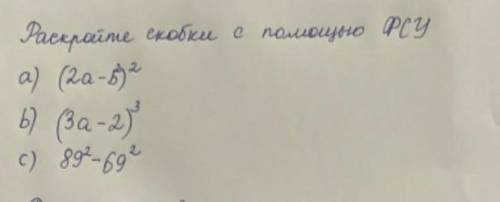 Раскройте скобки с помощью ФСУ
a) (2a-5)²
b) (3a-2)³
c) 89²-69²